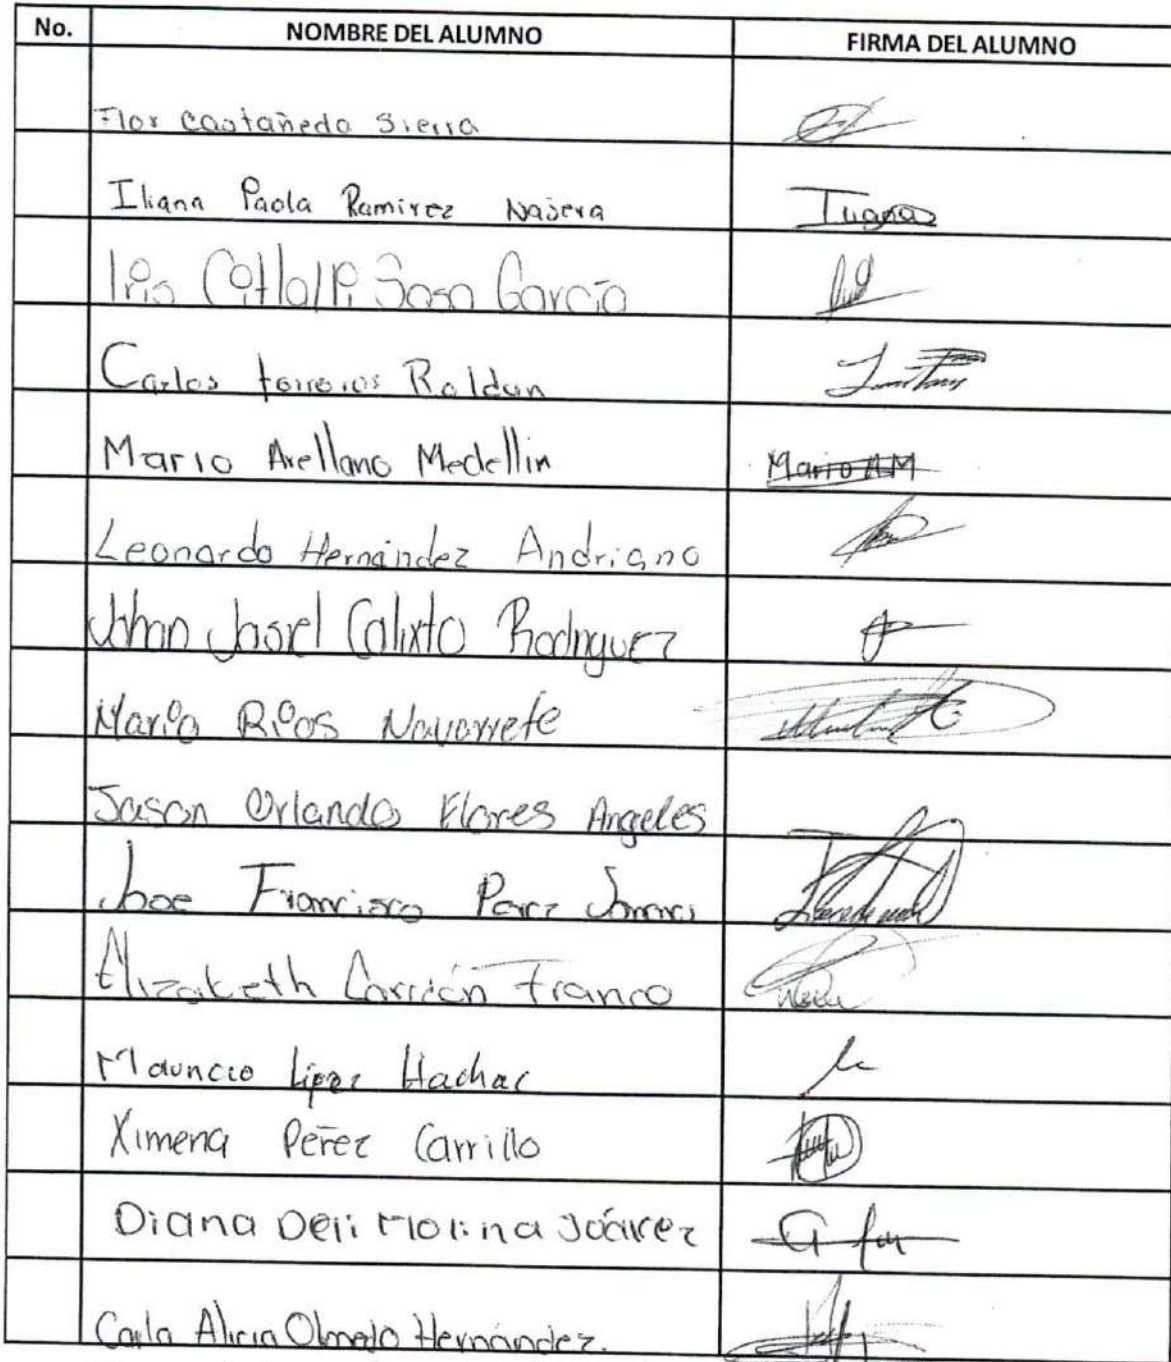 No. NOMBRE DEL ALUMNO FIRMA DEL ALUMNO
Flor Castañeda Sierra
Iliana Paola Ramirez Najera
Iris Citlalli Sosa García
Carlos Roldan
Mario Arellano Medellin Mario AM
Leonardo Hernández Andriano
Johan Jasiel Calixto Rodriguez
María Ríos Navarrete
Jason Orlando Flores Angeles
Jose Francisco Perez
Elizabeth Carrión Franco
Mauricio López
Ximena Pérez Carrillo
Diana Deli Molina Júarez
Carla Alicia Olmedo Hernández.